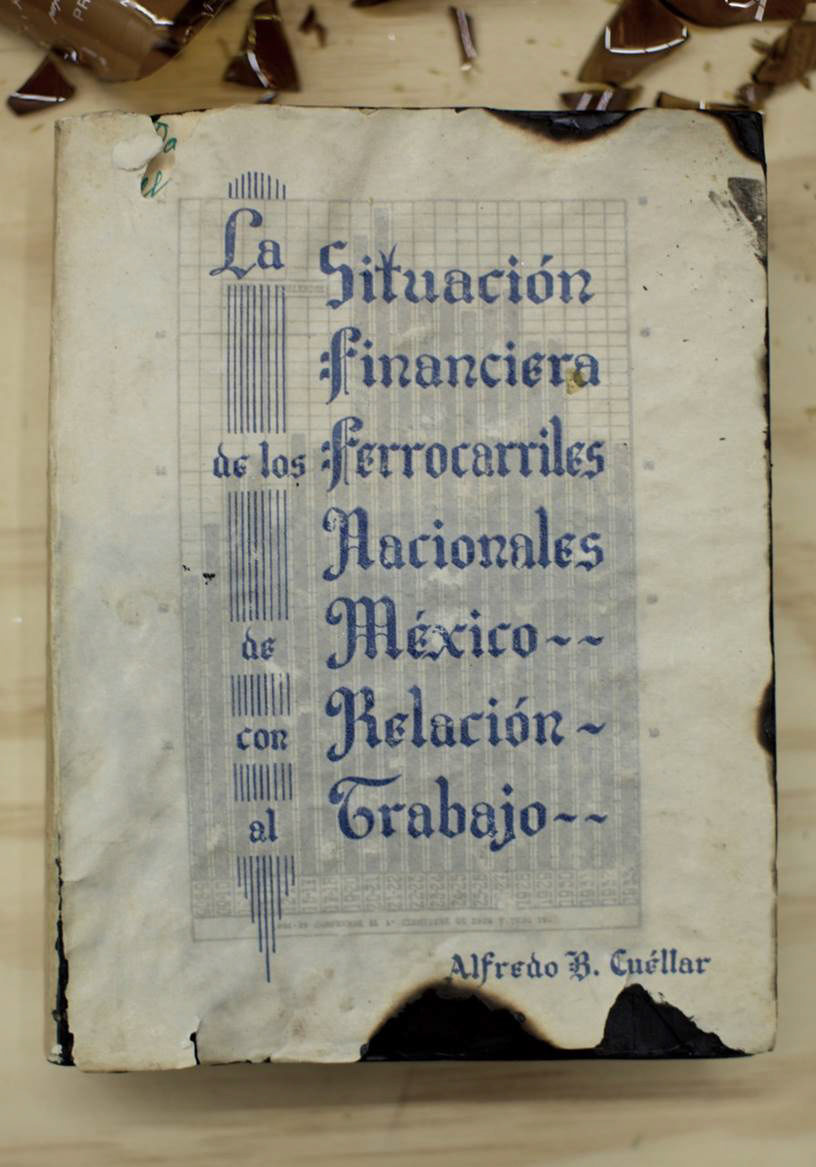 La Situación
Financiera
de los Ferrocarriles
Nacionales
de México~~
con Relación~
al Trabajo~~
Alfredo B. Cuéllar